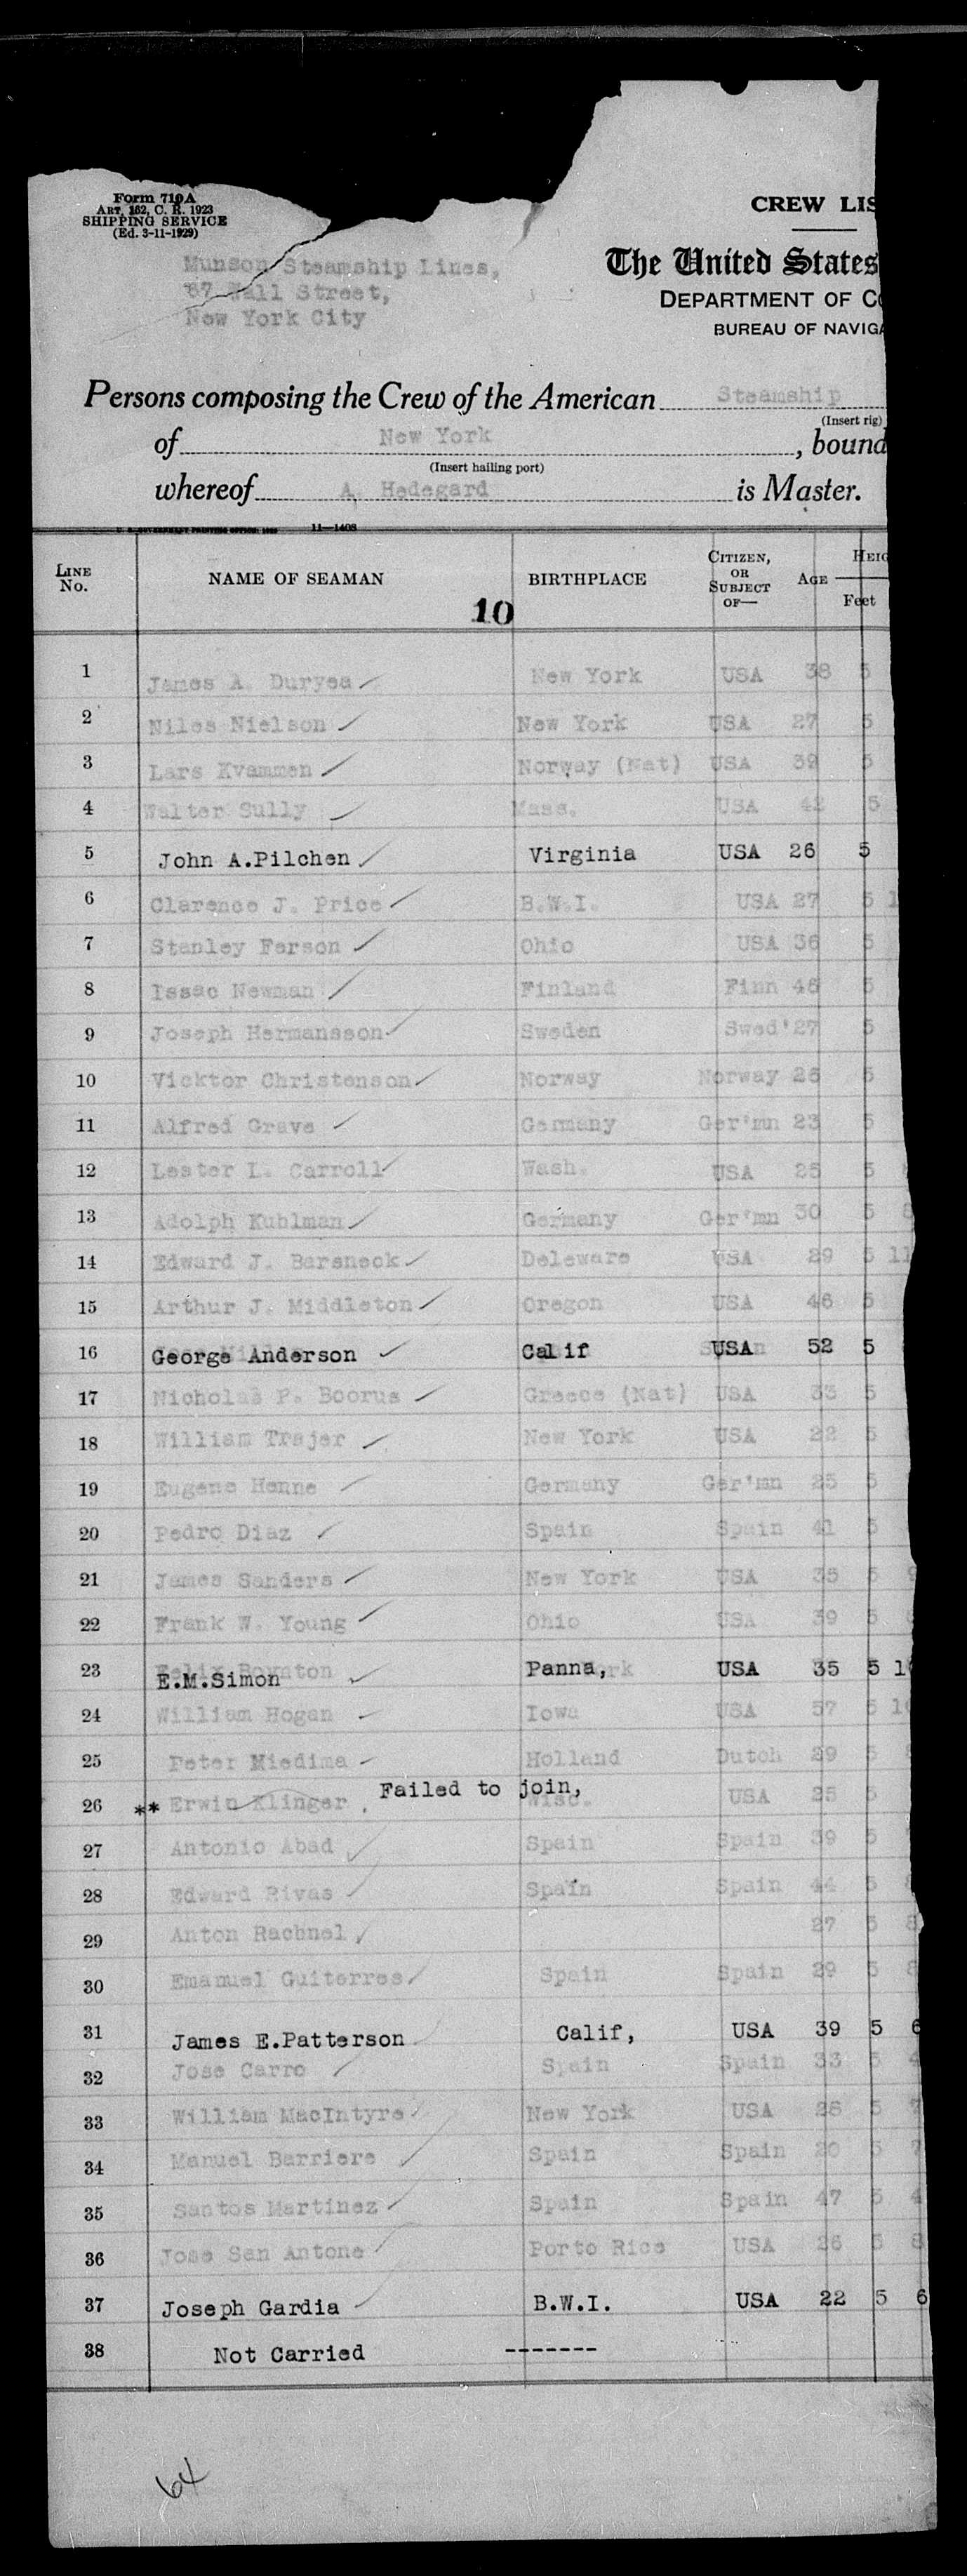 Form 710A
ART. 162, C. R. 1923
SHIPPING SERVICE
(Ed. 3-11-1929)
CREW LIS
Munson Steamship Lines,
67 Wall Street,
New York City
The United States
DEPARTMENT OF CO
BUREAU OF NAVIGA
Persons composing the Crew of the American Steamship
(Insert rig)
of New York, bound
(Insert hailing port)
whereof A. Hedegard is Master.
11—1408
LINE No. NAME OF SEAMAN BIRTHPLACE CITIZEN, OR SUBJECT OF— AGE HEIG
Feet
10
1 James A. Duryea New York USA 38 5
2 Niles Nielson New York USA 27 5
3 Lars Kvammen Norway (Nat) USA 39 5
4 Walter Sully Mass. USA 42 5
5 John A.Pilchen Virginia USA 26 5
6 Clarence J. Price B.W.I. USA 27 5 1
7 Stanley Ferson Ohio USA 36 5
8 Issac Newman Finland Finn 46 5
9 Joseph Hermansson Sweden Swed' 27 5
10 Vicktor Christenson Norway Norway 26 5
11 Alfred Grave Germany Ger'mn 23 5
12 Lester L. Carroll Wash. USA 25 5
13 Adolph Kuhlman Germany Ger'mn 30 5 8
14 Edward J. Barsneck Deleware USA 29 5 11
15 Arthur J. Middleton Oregon USA 46 5
16 George Anderson Calif USA 52 5
17 Nicholas P. Boorus Greece (Nat) USA 33 5
18 William Trajer New York USA 22 5
19 Eugene Henne Germany Ger'mn 25 5
20 Pedro Diaz Spain Spain 41 5
21 James Sanders New York USA 35 5 9
22 Frank W. Young Ohio USA 39 5
23 E.M.Simon Panna, USA 35 5 10
24 William Hogan Iowa USA 57 5 10
25 Peter Miedima Holland Dutch 29 5 8
Failed to join,
26 ** Erwin Klinger Wisc. USA 25 5
27 Antonio Abad Spain Spain 39 5
28 Edward Rivas Spain Spain 44 5
29 Anton Rachnel 27 5 8
30 Emanuel Guiterres Spain Spain 29 5 8
31 James E.Patterson Calif, USA 39 5 6
32 Jose Carro Spain Spain 33 5 4
33 William MacIntyre New York USA 26 5 7
34 Manuel Barriere Spain Spain 20 5 7
35 Santos Martinez Spain Spain 47 5 4
36 Jose San Antone Porto Rico USA 26 5 8
37 Joseph Gardia B.W.I. USA 22 5 6
38 Not Carried -------
64